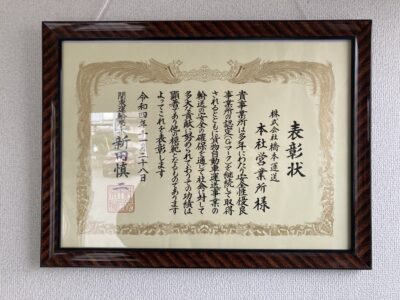 表彰状
株式会社橋本運送
本社営業所様
貴事業所は多年にわたり安全性優良
事業所の認定(Gマーク)を継続して取得
されるとともに貨物自動車運送事業の
輸送の安全の確保を通じて社会に対して
多大な貢献に努められておりその功績は
顕著であり他の模範となるものであります
よってこれを表彰します
令和四年十一月二十八日
関東運輸局長 新田慎二